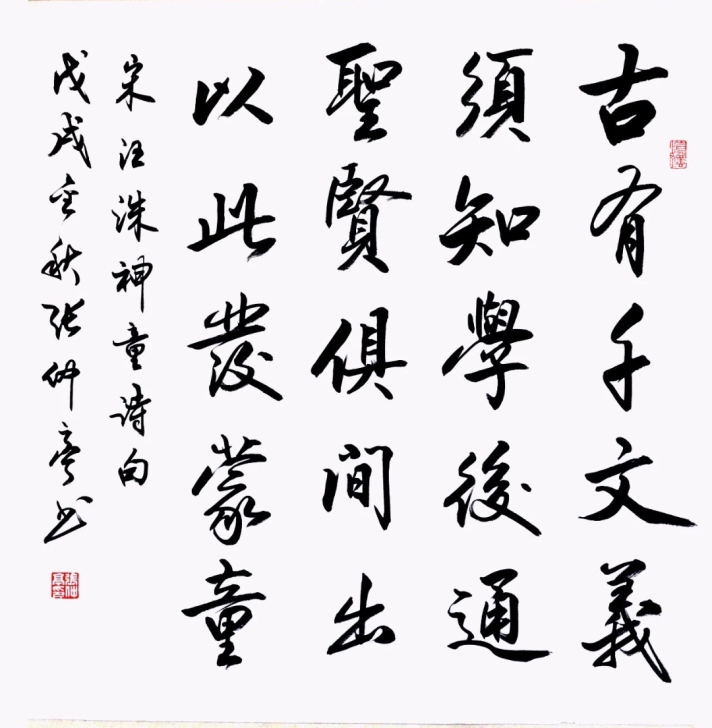 古有千文義
須知學後通
聖賢俱間出
以此發蒙童
宋汪洙神童詩句
戊戌金秋张仲亭书